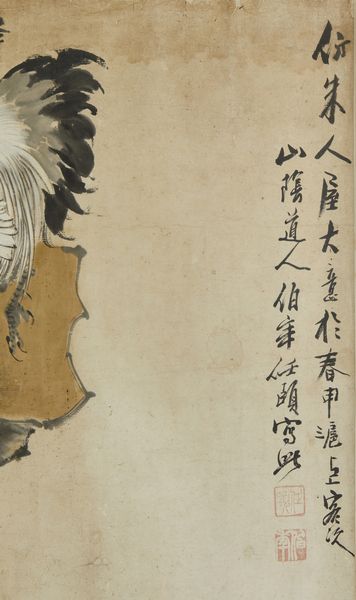 仿朱人屋大意於春申滬上客次
山陰道人伯年任頤寫此